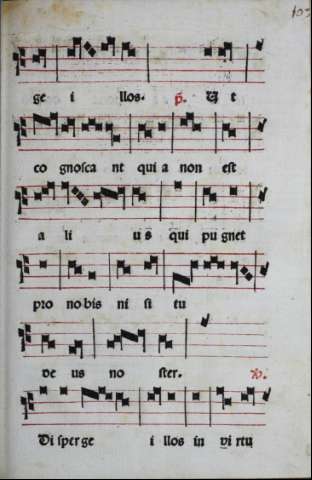 103
ge i llos. p̃. Ut
co gnosca nt qui a non est
a li us qui pu gnet
pro no bis ni si tu
de us no ster. ꝟ.
Di sper ge i llos in vi rtu